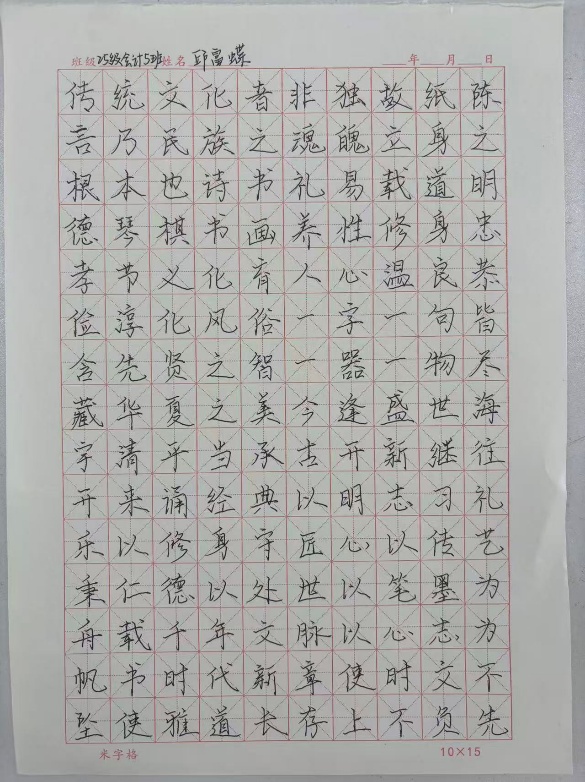 班级 25级会计5班 姓名 邱雷蝶 年 月 日
传统文化者非独故纸陈
言乃民族之魂魄立身之
根本也诗书礼易载道明
德琴棋书画养性修身忠
孝节义化育人心温良恭
俭淳化风俗一字一句皆
含先贤之智一器一物尽
藏华夏之美今逢盛世海
宇清平当承古开新继往
开来诵经典以明志习礼
乐以修身守匠心以传艺
秉仁德以处世以笔墨为
舟载千年文脉以心志为
帆书时代新章使时文不
坠使雅道长存上不负先
米字格 10×15